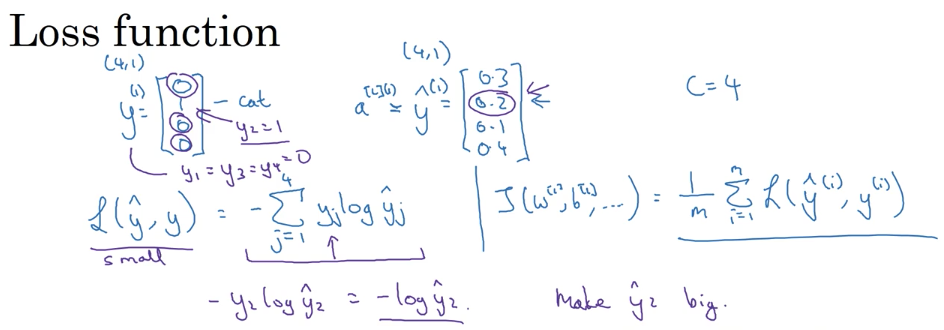 Loss function
(4,1)
y⁽ⁱ⁾ = [0 1 0 0] - cat
y₂ = 1
y₁ = y₃ = y₄ = 0
(4,1)
a^{[L](i)} = ŷ⁽ⁱ⁾ = [0.3 0.2 0.1 0.4]
C = 4
ℒ(ŷ, y) = - ∑_{j=1}^{4} yⱼ log ŷⱼ
small
J(w^{[1]}, b^{[1]}, ...) = 1/m ∑_{i=1}^{m} ℒ(ŷ⁽ⁱ⁾, y⁽ⁱ⁾)
- y₂ log ŷ₂ = - log ŷ₂. Make ŷ₂ big.